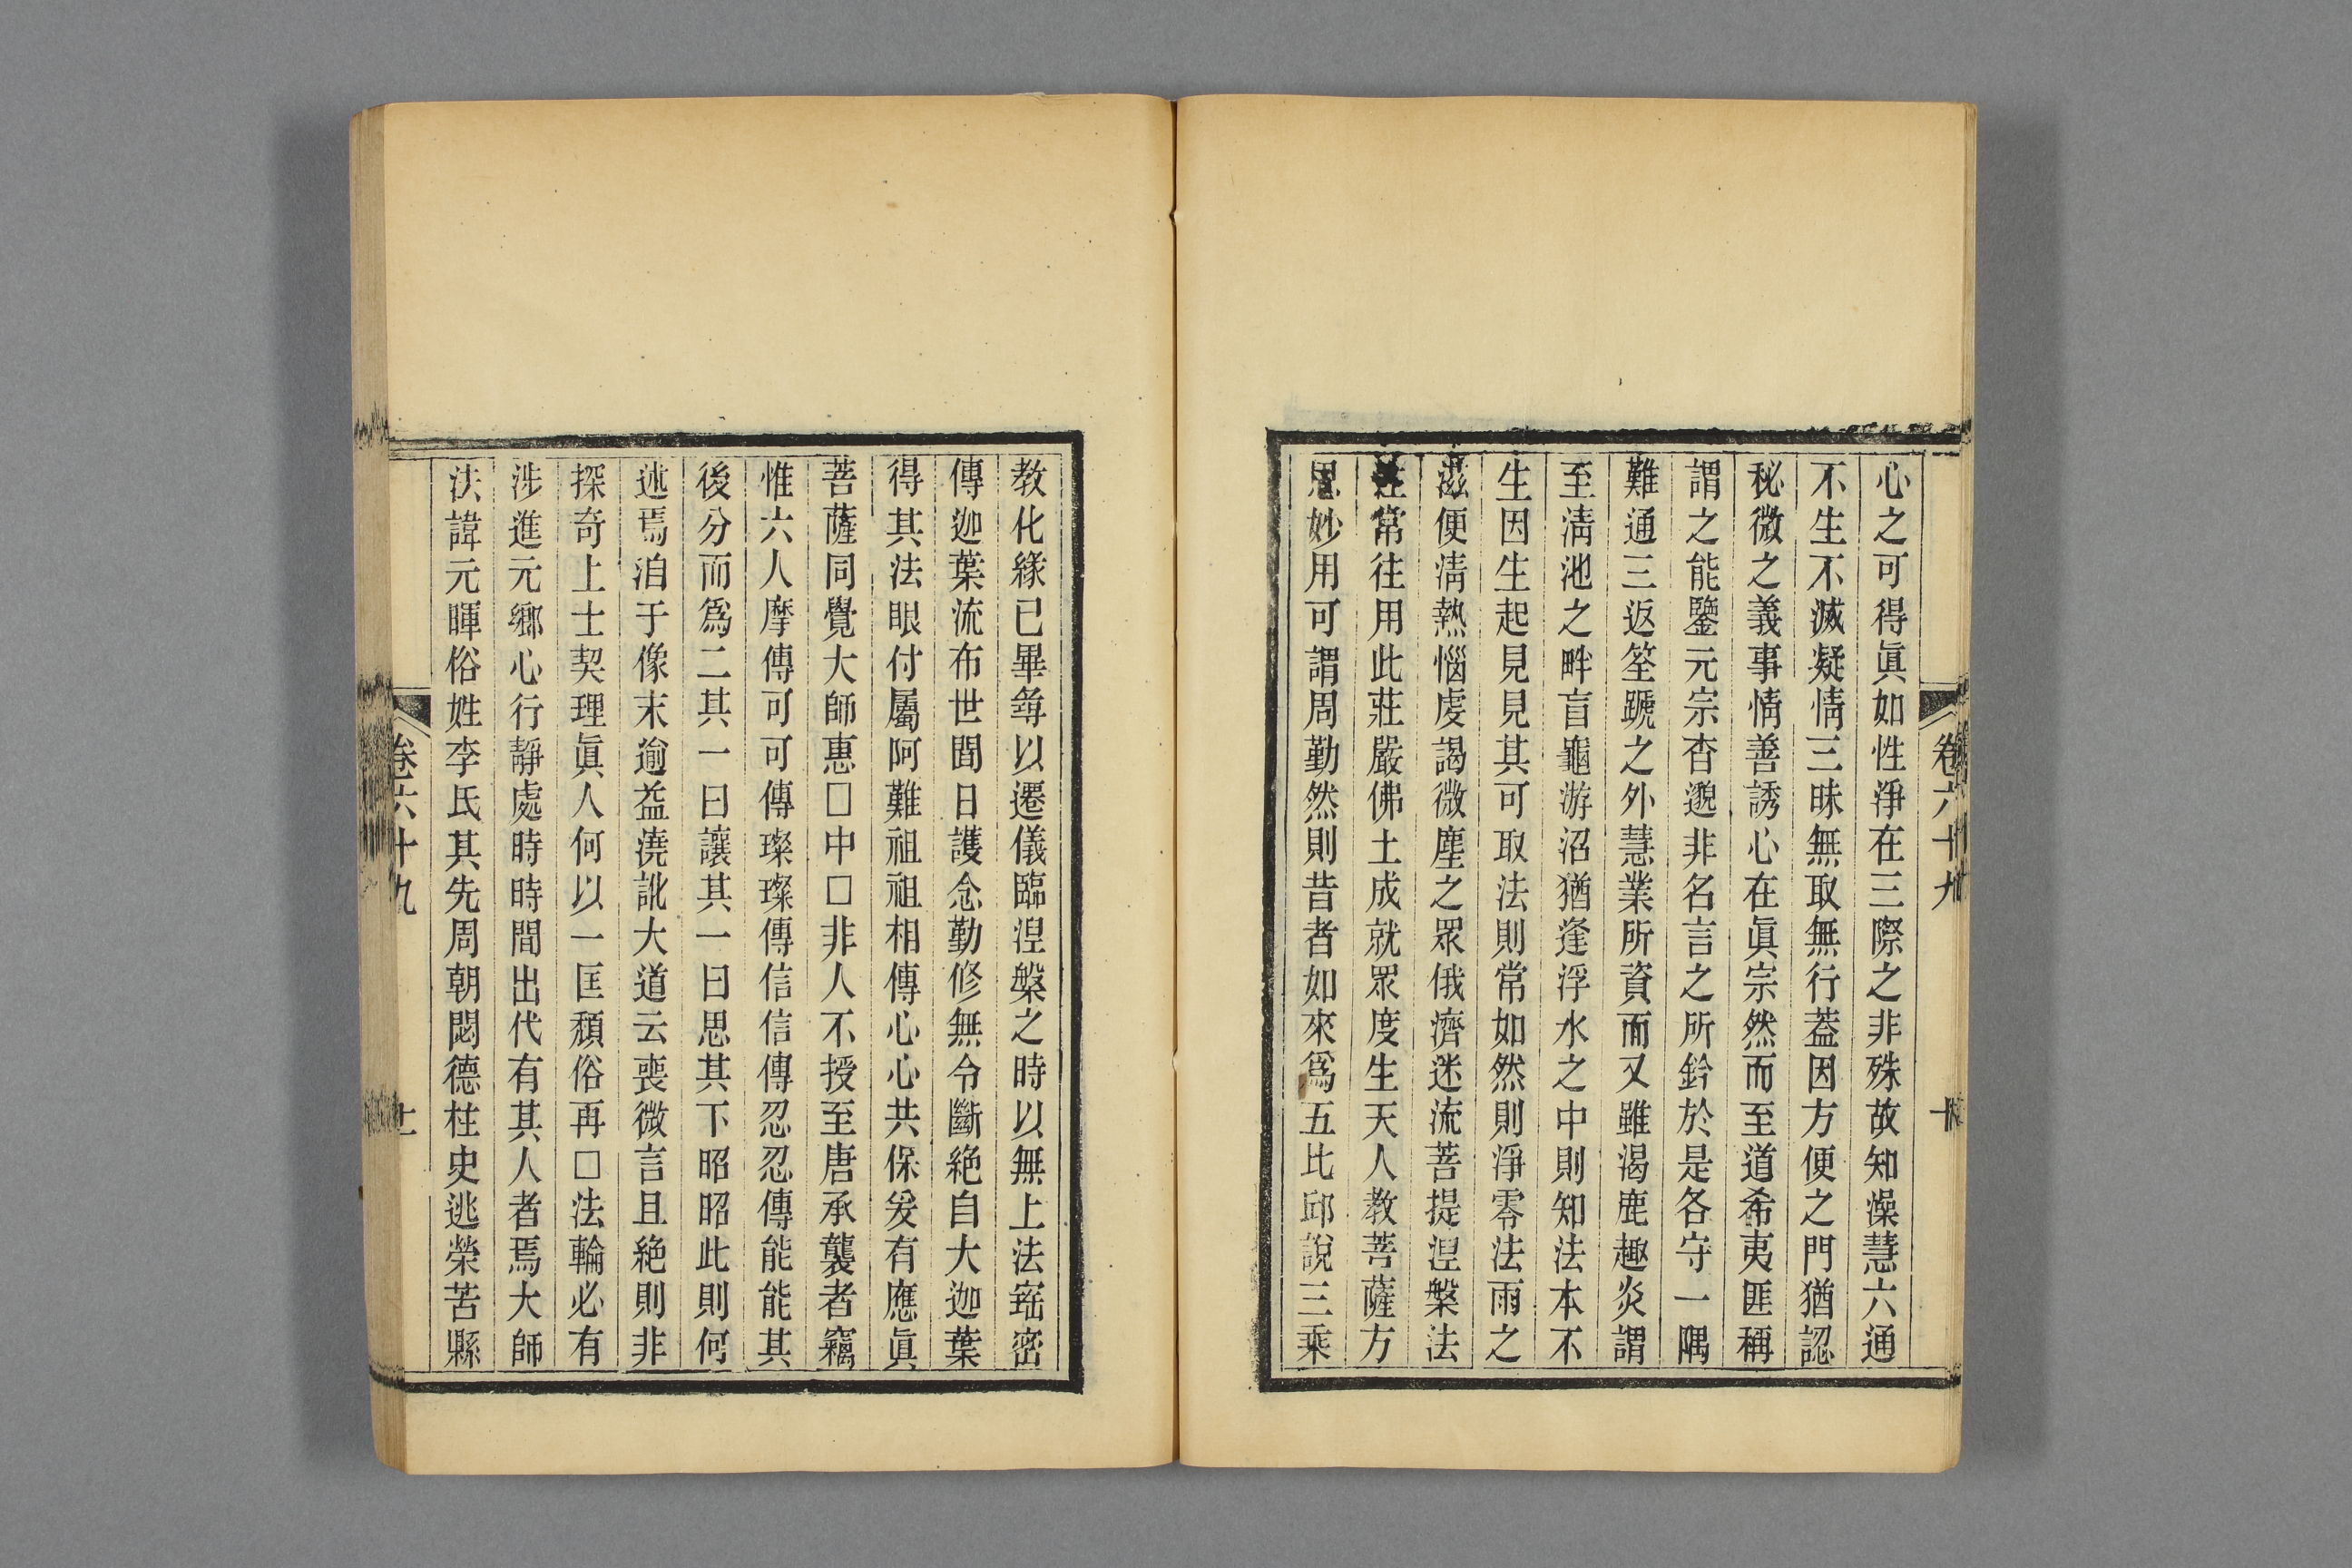 心之可得眞如性淨在三際之非殊故知澡慧六通
不生不滅凝情三昧無取無行葢因方便之門猶認
秘微之義事情善誘心在眞宗然而至道希夷匪稱
謂之能鑒元宗杳邈非名言之所鈐於是各守一隅
難通三返筌蹏之外慧業所資而又雖渴鹿趣炎謂
至淸池之畔盲龜游沼猶逢浮水之中則知法本不
生因生起見見其可取法則常如然則淨零法雨之
滋便淸熱惱虔謁微塵之眾俄濟迷流菩提涅槃法
性常往用此莊嚴佛土成就眾度生天人教菩薩方
思妙用可謂周勤然則昔者如來爲五比邱說三乘
卷六十九
十
教化緣已畢尋以遷儀臨涅槃之時以無上法寶密
傳迦葉流布世間日護念勤修無令斷絶自大迦葉
得其法眼付屬阿難祖祖相傳心心共保爰有應眞
菩薩同覺大師惠□中□非人不授至唐承襲者竊
惟六人摩傳可可傳璨璨傳信信傳忍忍傳能能其
後分而爲二其一曰讓其一曰思其下昭昭此則何
述焉洎于像末逾益澆訛大道云喪微言且絶則非
探奇上士契理眞人何以一匡頹俗再□法輪必有
涉進元鄉心行靜處時時間出代有其人者焉大師
法諱元暉俗姓李氏其先周朝閟德柱史逃榮苦縣
卷六十九